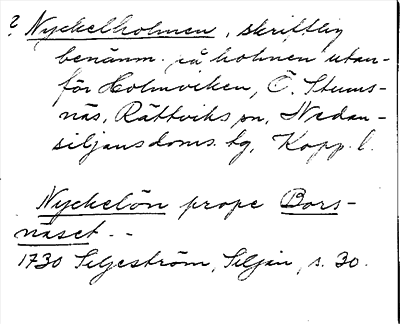 ? Nyckelholmen, skriftlig
benämn. på holmen utan-
för Holmviken, Ö. Stums-
näs, Rättviks sn, Nedan-
siljans doms. tg, Kopp. l.
Nyckelön prope Bors-
näset --
1730 Seljeström, Siljan, s. 30.